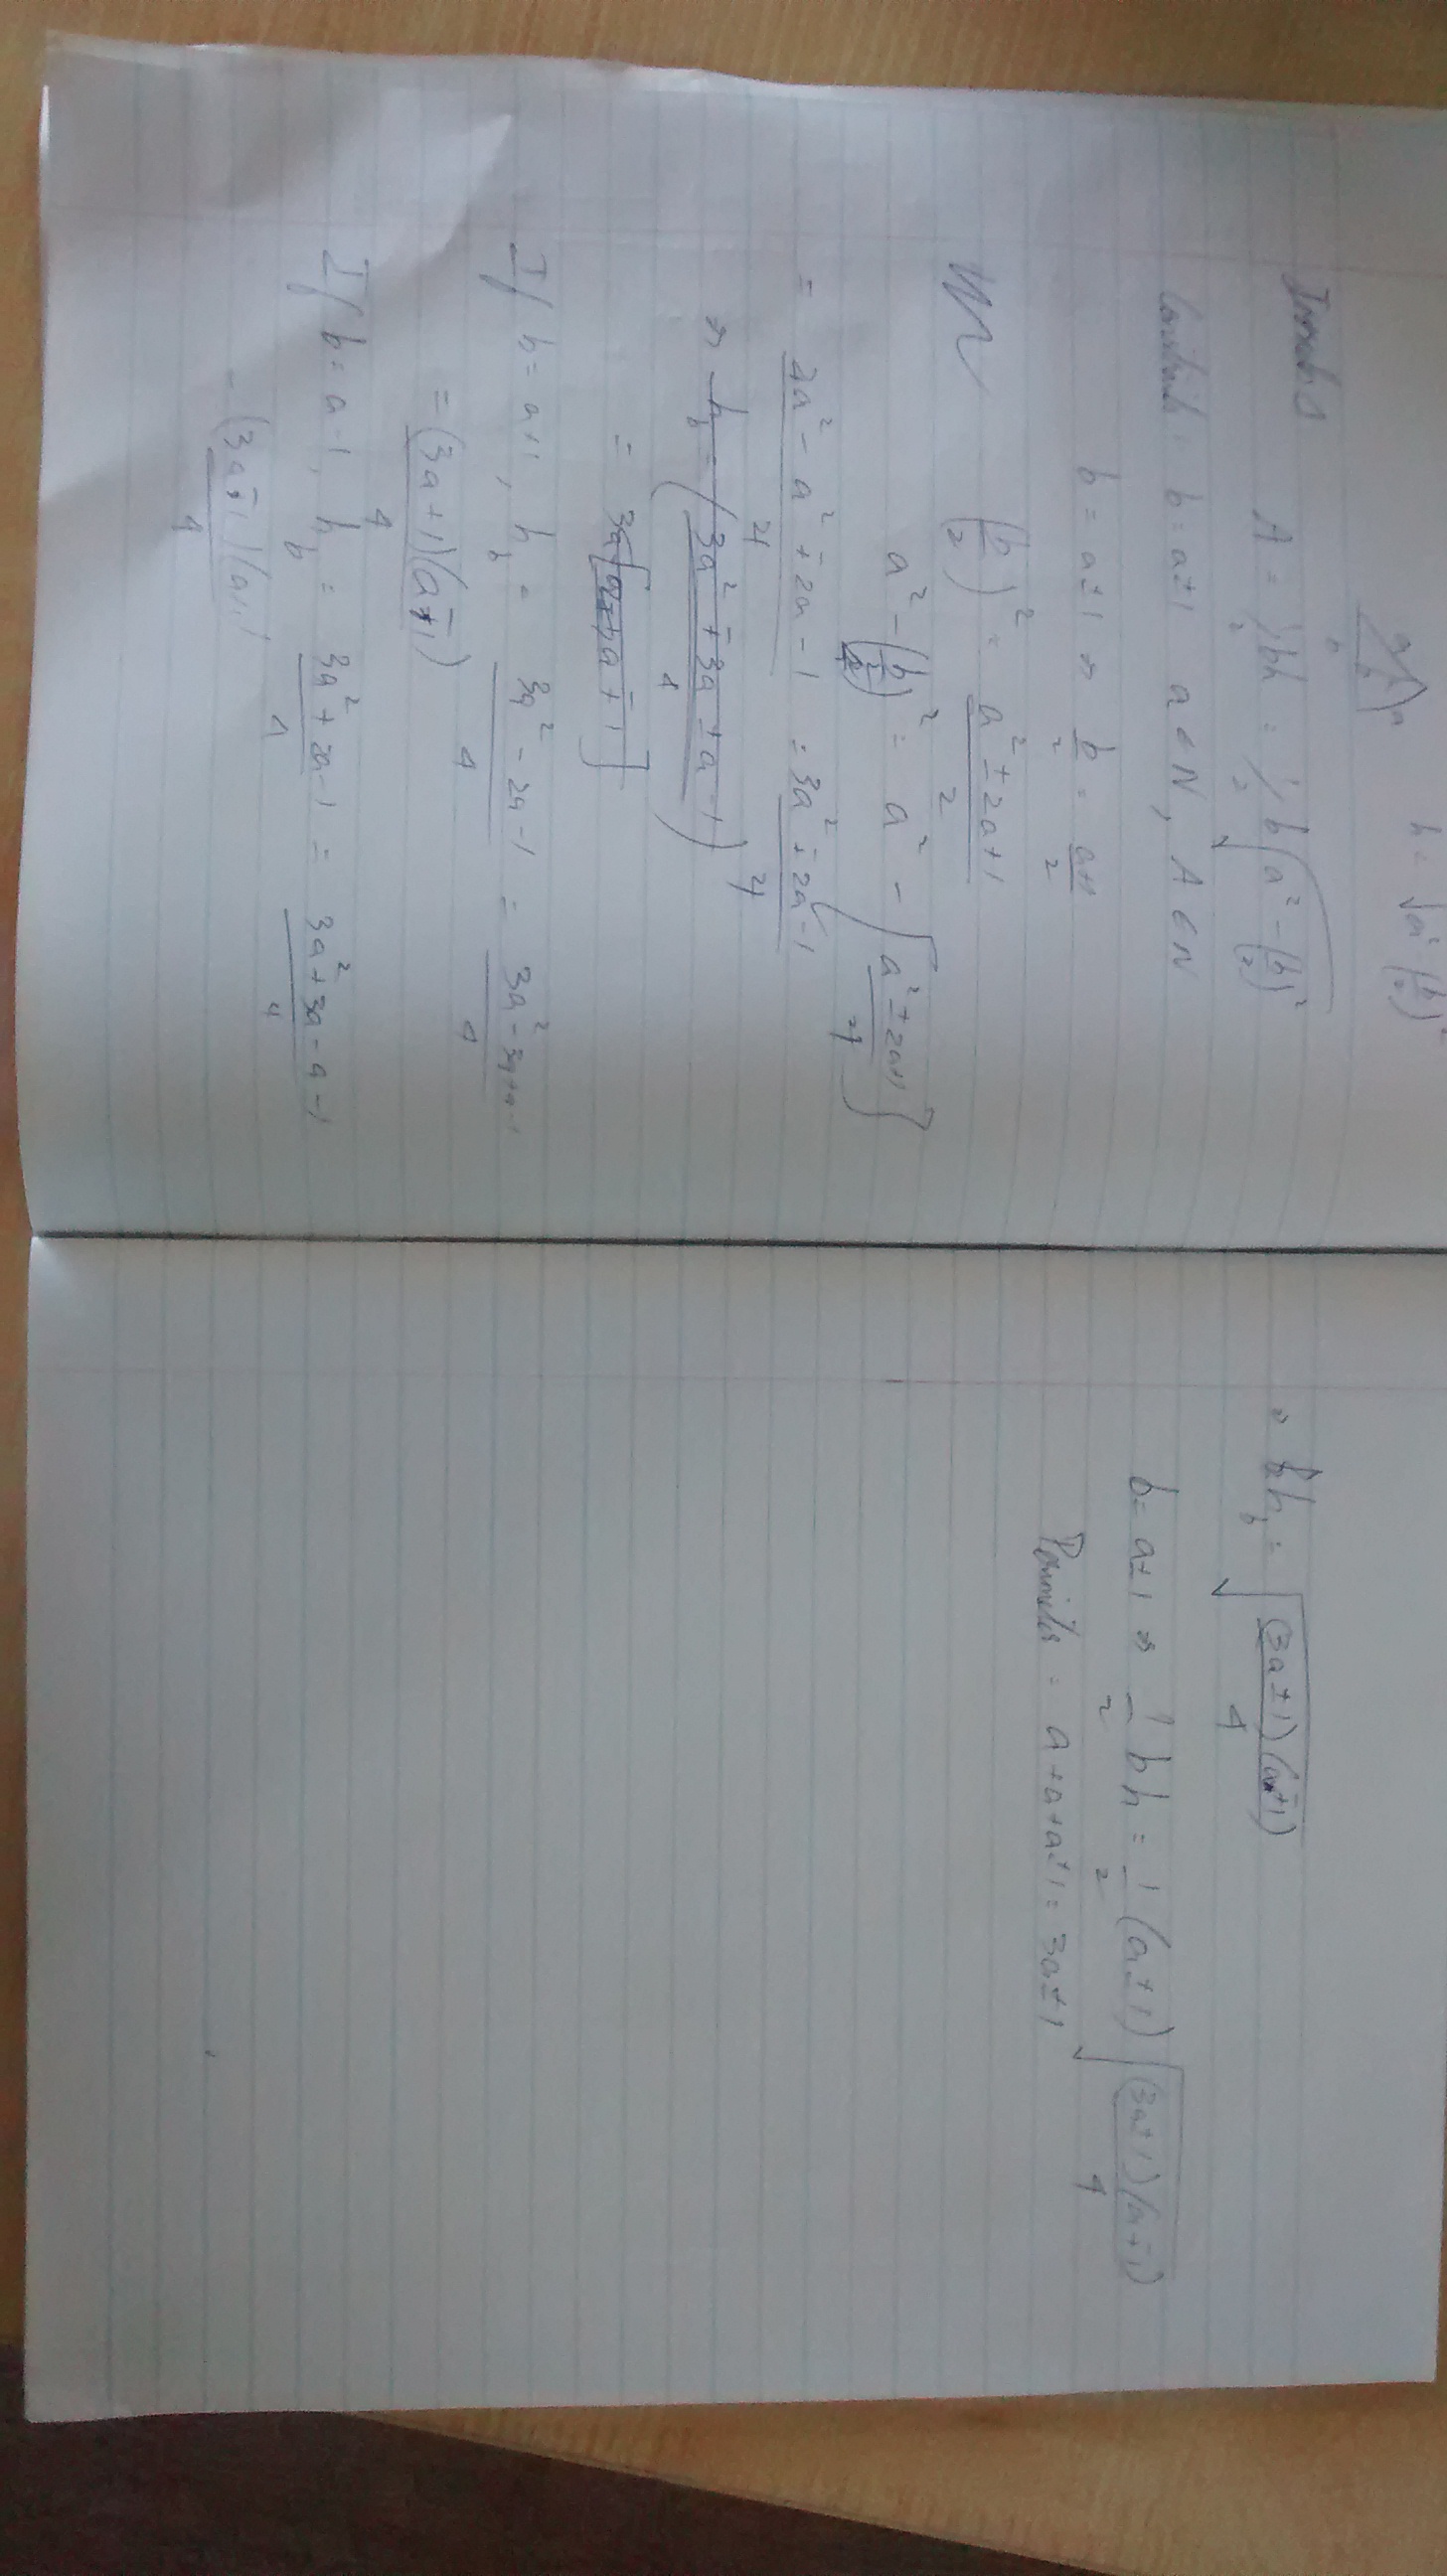 h = √a² - (b/2)²
a
h
b
A = 1/2 bh = 1/2 b √(a² - (b/2)²)
b = a ± 1 a ∈ N, A ∈ N
b = a ± 1 ⇒ b/2 = a±1/2
(b/2)² = a² ± 2a + 1 / 2
a² - (b/2)² = a² - [a² ± 2a+1 / 4]
= 4a² - a² ∓ 2a - 1 / 4 = 3a² ∓ 2a - 1 / 4
⇒ h_b = (3a² ∓ 3a ± a - 1 / 4)
=
If b = a+1, h_b = 3a² - 2a - 1 / 4 = 3a² - 3a + a - 1 / 4
= (3a + 1)(a - 1) / 4
If b = a - 1, h_b = 3a² + 2a - 1 / 4 = 3a² + 3a - a - 1 / 4
= (3a - 1)(a+1) / 4
⇒ h_b = √((3a ± 1)(a ∓ 1) / 4)
b = a ± 1 ⇒ 1/2 bh = 1/2 (a ± 1) √((3a ± 1)(a ∓ 1) / 4)
Perimeter = a + a + a ± 1 = 3a ± 1